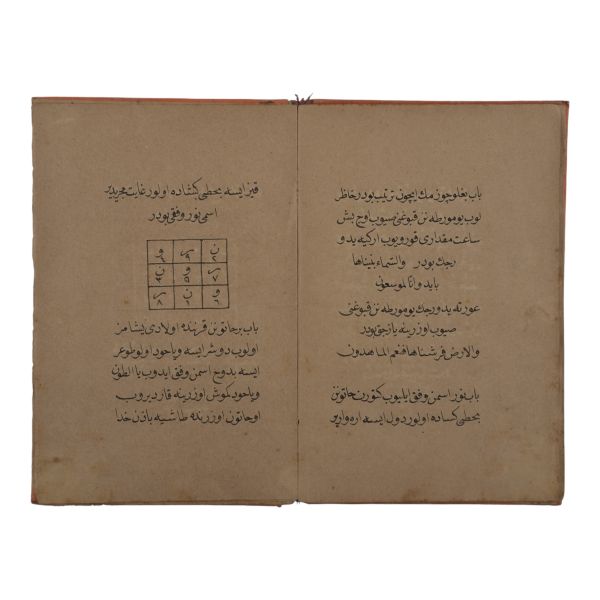 باب بغلو چوزمك ایچون ترتیب بودر خاظر
لوب یومورطه نن قبوغنی صیوب اوچ بش
ساعت مقداری قورویوب ارکیه یدو
رجك بودر والسماء بنیناها
باید وانا لموسعون
عورته یدورجك یومورطه نن قبوغنی
صیوب اوزرینه یازیجق بودر
والارض فرشناها فنعم الماهدون
باب نور اسمن وفق ایلیوب کتورن خاتونن
بحطی کساده اولور دول ایسه اره وارير
قیز ایسه بحطی کشاده اولور غایت مجریدیر
اسمی نور وفقی بودر
و ر ن
٤ ٩ ٢
ن و ر
٣ ٥ ٧
ر ن و
٨ ١ ٦
باب بر خاتونن قرننده اولادی یشامز
اولوب دوشر ایسه ویاخود اولو طوغر
ایسه بدوح اسمن وفق ایدوب یا الطون
ویاخود کموش اوزرینه قازدیروب
اوخاتون اوزرنده طاشیه باذن خدا